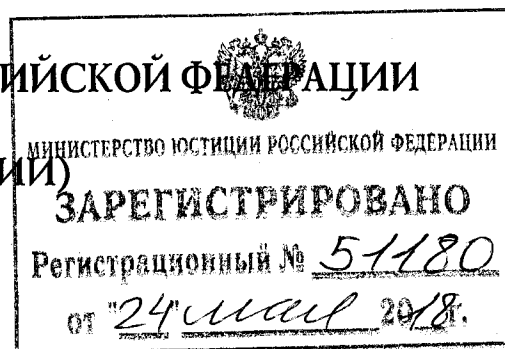 ИЙСКОЙ ФЕДЕРАЦИИ
МИНИСТЕРСТВО ЮСТИЦИИ РОССИЙСКОЙ ФЕДЕРАЦИИ
ИИ)
ЗАРЕГИСТРИРОВАНО
Регистрационный № 51180
от "24" мая 2018г.